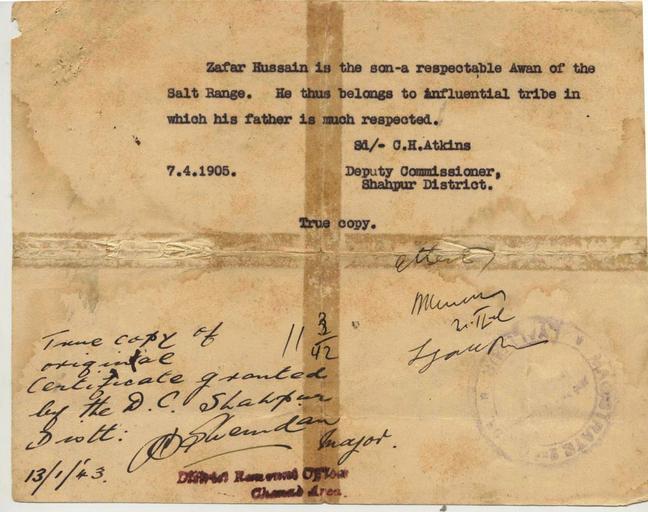 Zafar Hussain is the son-a respectable Awan of the
Salt Range. He thus belongs to influential tribe in
which his father is much respected.
Sd/- C.H.Atkins
7.4.1905.
Deputy Commissioner,
Shahpur District.
True copy.
True copy of
original
Certificate granted
by the D.C. Shahpur
Distt:
Major.
13/1/43.
District Remount Officer
Chenab Area
MAGISTRATE